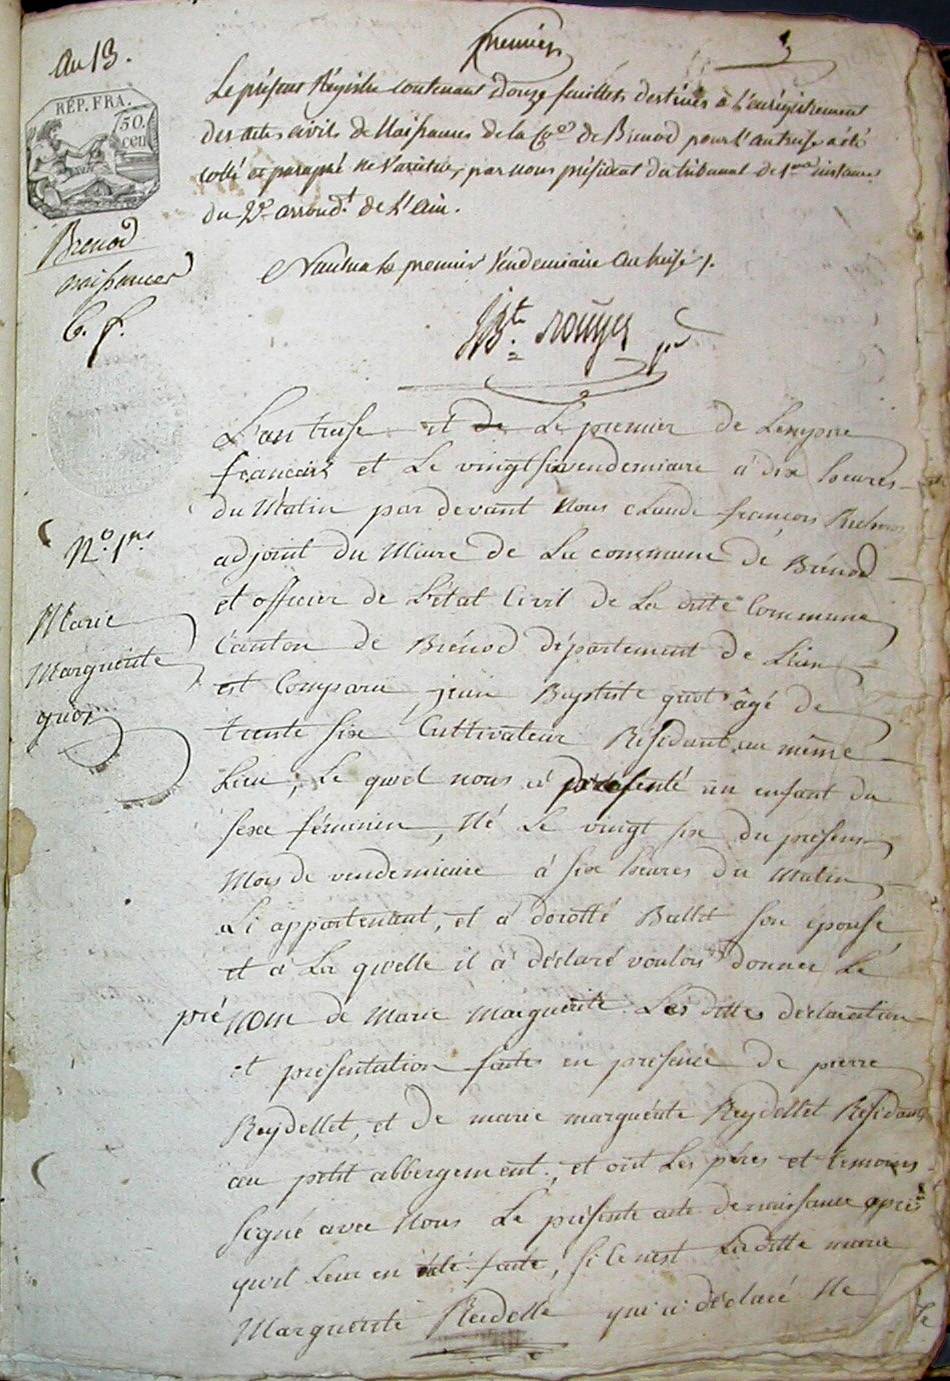 premier
an 13.
RÉP. FRA.
50.
cen
Brenod
naissances
C. f.
Le présent Régistre contenant Douze feuillets destinés à L'enrégistrement
des actes civils de Naissances de la Cne de Brenod pour L'an treise a été
cotté et paraphé Ne Varietur, par nous président du tribunal de 1ere instance
du 2e arrondt. de L'ain.
Nantua le premier Vendemiaire an treise /.
JBte. rouyer
pt
L'an treise et de Le premier de Lempire
francais et Le vingt six vendemiaire à dix heures
du Matin par devant Nous Claude françois
adjoint du Maire de La commune de Brénod
et officier de L'état Civil de La ditte Commune
Canton de Brénod département de Lain
est Comparu jean Baptiste quot âgé de
trente six Cultivateur Résidant au même
Lieu, Le quel nous à présenté un enfant du
sexe féminin, Né Le vingt six du présent
Mois de vendemiaire à six heures du Matin
Lui appartenant, et à dorotté Ballet son épouse
et à La quelle il à déclaré vouloir donner Le
pré nom de Marie Marguerite. Les dittes déclaration
et présentation faite en présence de pierre
Reydellet, et de marie marguérite Reydellet Résidants
au petit abbergement, et ont Les péres et temoins
signé avec Nous Le présente acte de naissance après
quil Leur en été faite, si ce n'est La ditte marie
Marguerite Reidelle qui a déclaré Ne
Le
No. 1er
Marie
Marguerite
quot